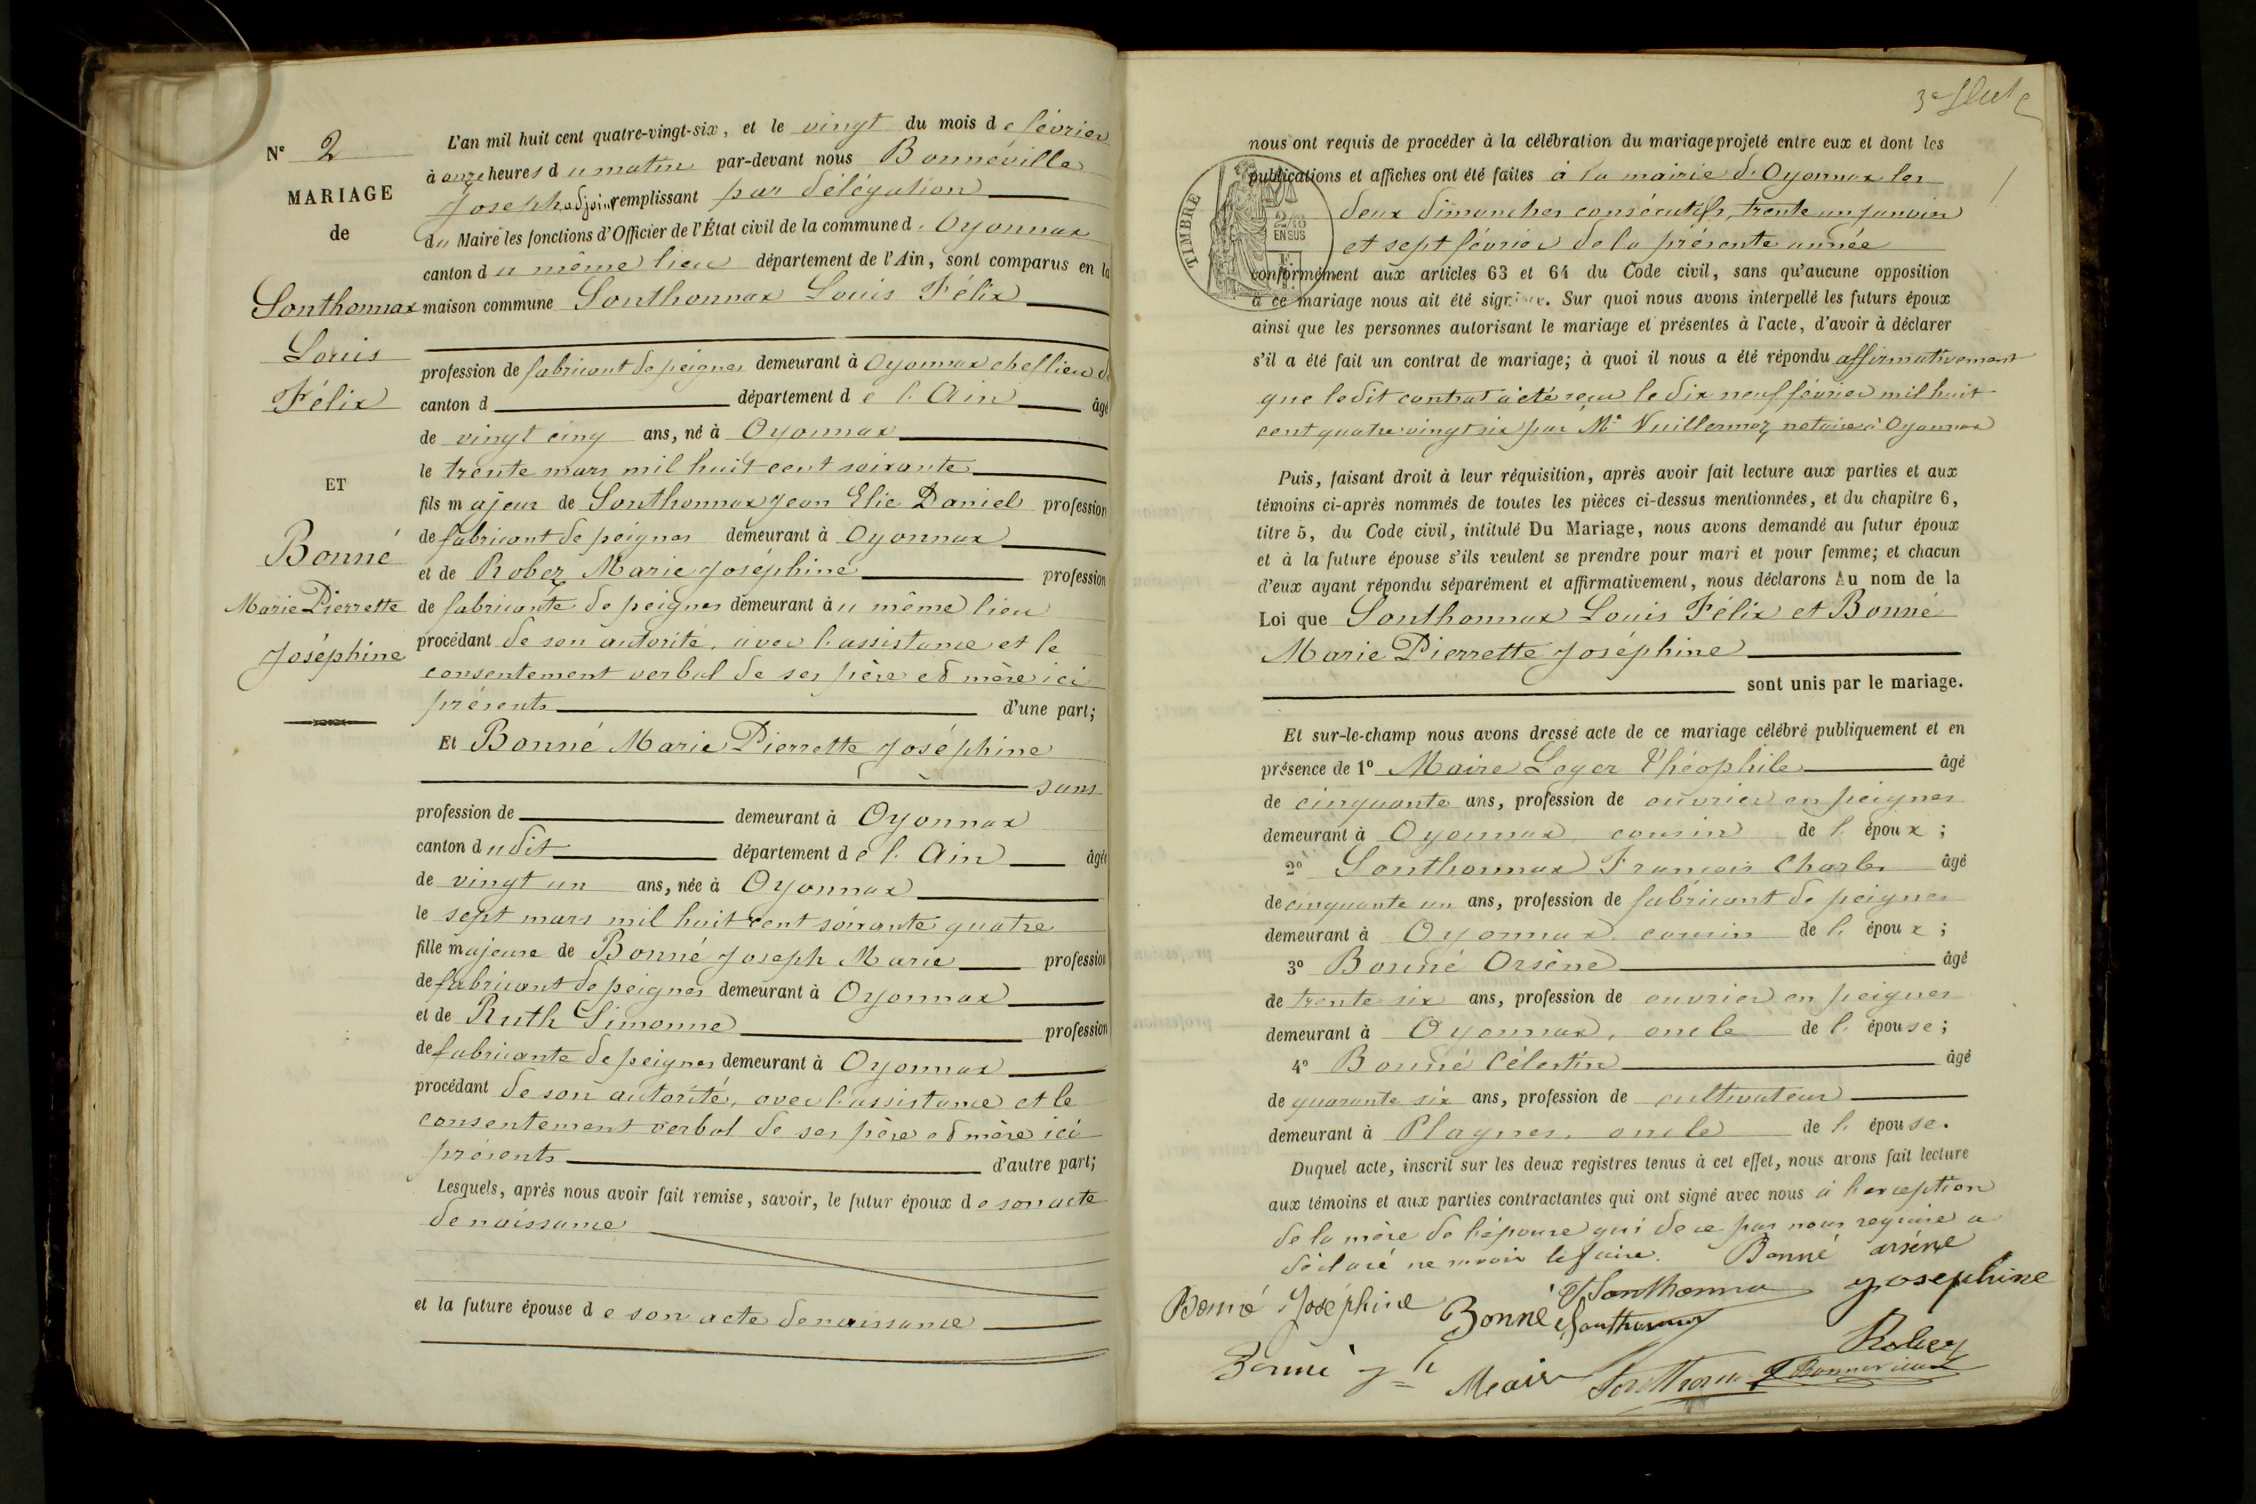 N° 2
MARIAGE
de
Sonthonnax
Louis
Félix
ET
Bonné
Marie Pierrette
Joséphine
L'an mil huit cent quatre-vingt-six, et le vingt du mois de février
à onze heures du matin par-devant nous Bonneville
Joseph adjoint remplissant par délégation
du Maire les fonctions d'Officier de l'État civil de la commune d'Oyonnax
canton du même lieu département de l'Ain, sont comparus en la
maison commune Sonthonnax Louis Félix
profession de fabricant de peignes demeurant à Oyonnax chef lieu de
canton d département de l'Ain âgé
de vingt cinq ans, né à Oyonnax
le trente mars mil huit cent soixante
fils majeur de Sonthonnax Jean Elie Daniel profession
de fabricant de peignes demeurant à Oyonnax
et de Robez Marie Joséphine profession
de fabricante de peignes demeurant au même lieu
procédant de son autorité, avec l'assistance et le
consentement verbal de ses père et mère ici
présents d'une part;
Et Bonné Marie Pierrette Joséphine
sans
profession de demeurant à Oyonnax
canton dudit département de l'Ain âgée
de vingt un ans, née à Oyonnax
le sept mars mil huit cent soixante quatre
fille majeure de Bonné Joseph Marie profession
de fabricant de peignes demeurant à Oyonnax
et de Ruth Simonne profession
de fabricante de peignes demeurant à Oyonnax
procédant de son autorité, avec l'assistance et le
consentement verbal de ses père et mère ici
présents d'autre part;
Lesquels, après nous avoir fait remise, savoir, le futur époux de son acte
de naissance
et la future épouse de son acte de naissance
3e
TIMBRE
2/10
EN SUS
nous ont requis de procéder à la célébration du mariage projeté entre eux et dont les
publications et affiches ont été faites à la mairie d'Oyonnax les
deux dimanches consécutifs, trente un janvier
et sept février de la présente année
conformément aux articles 63 et 64 du Code civil, sans qu'aucune opposition
à ce mariage nous ait été signifiée. Sur quoi nous avons interpellé les futurs époux
ainsi que les personnes autorisant le mariage et présentes à l'acte, d'avoir à déclarer
s'il a été fait un contrat de mariage; à quoi il nous a été répondu affirmativement
que le dit contrat a été reçu le dix neuf février mil huit
cent quatre vingt six par Me Vuillermoz notaire à Oyonnax
Puis, faisant droit à leur réquisition, après avoir fait lecture aux parties et aux
témoins ci-après nommés de toutes les pièces ci-dessus mentionnées, et du chapitre 6,
titre 5, du Code civil, intitulé Du Mariage, nous avons demandé au futur époux
et à la future épouse s'ils veulent se prendre pour mari et pour femme; et chacun
d'eux ayant répondu séparément et affirmativement, nous déclarons Au nom de la
Loi que Sonthonnax Louis Félix et Bonné
Marie Pierrette Joséphine
sont unis par le mariage.
Et sur-le-champ nous avons dressé acte de ce mariage célébré publiquement et en
présence de 1° Maire Leger Théophile âgé
de cinquante ans, profession de ouvrier en peignes
demeurant à Oyonnax, cousin de l'époux;
2° Sonthonnax François Charles âgé
de cinquante un ans, profession de fabricant de peignes
demeurant à Oyonnax, cousin de l'époux;
3° Bonné Orsène âgé
de trente six ans, profession de ouvrier en peignes
demeurant à Oyonnax, oncle de l'épouse;
4° Bonné Célestin âgé
de quarante six ans, profession de cultivateur
demeurant à Plagnes, oncle de l'épouse.
Duquel acte, inscrit sur les deux registres tenus à cet effet, nous avons fait lecture
aux témoins et aux parties contractantes qui ont signé avec nous à l'exception
de la mère de l'épouse qui de ce par nous requise a
déclaré ne savoir le faire. Bonné arsène
Bonné Joséphine Bonné Sonthonnax Josephine
Robez
Bonné Maire Sonthonnax Bonneville